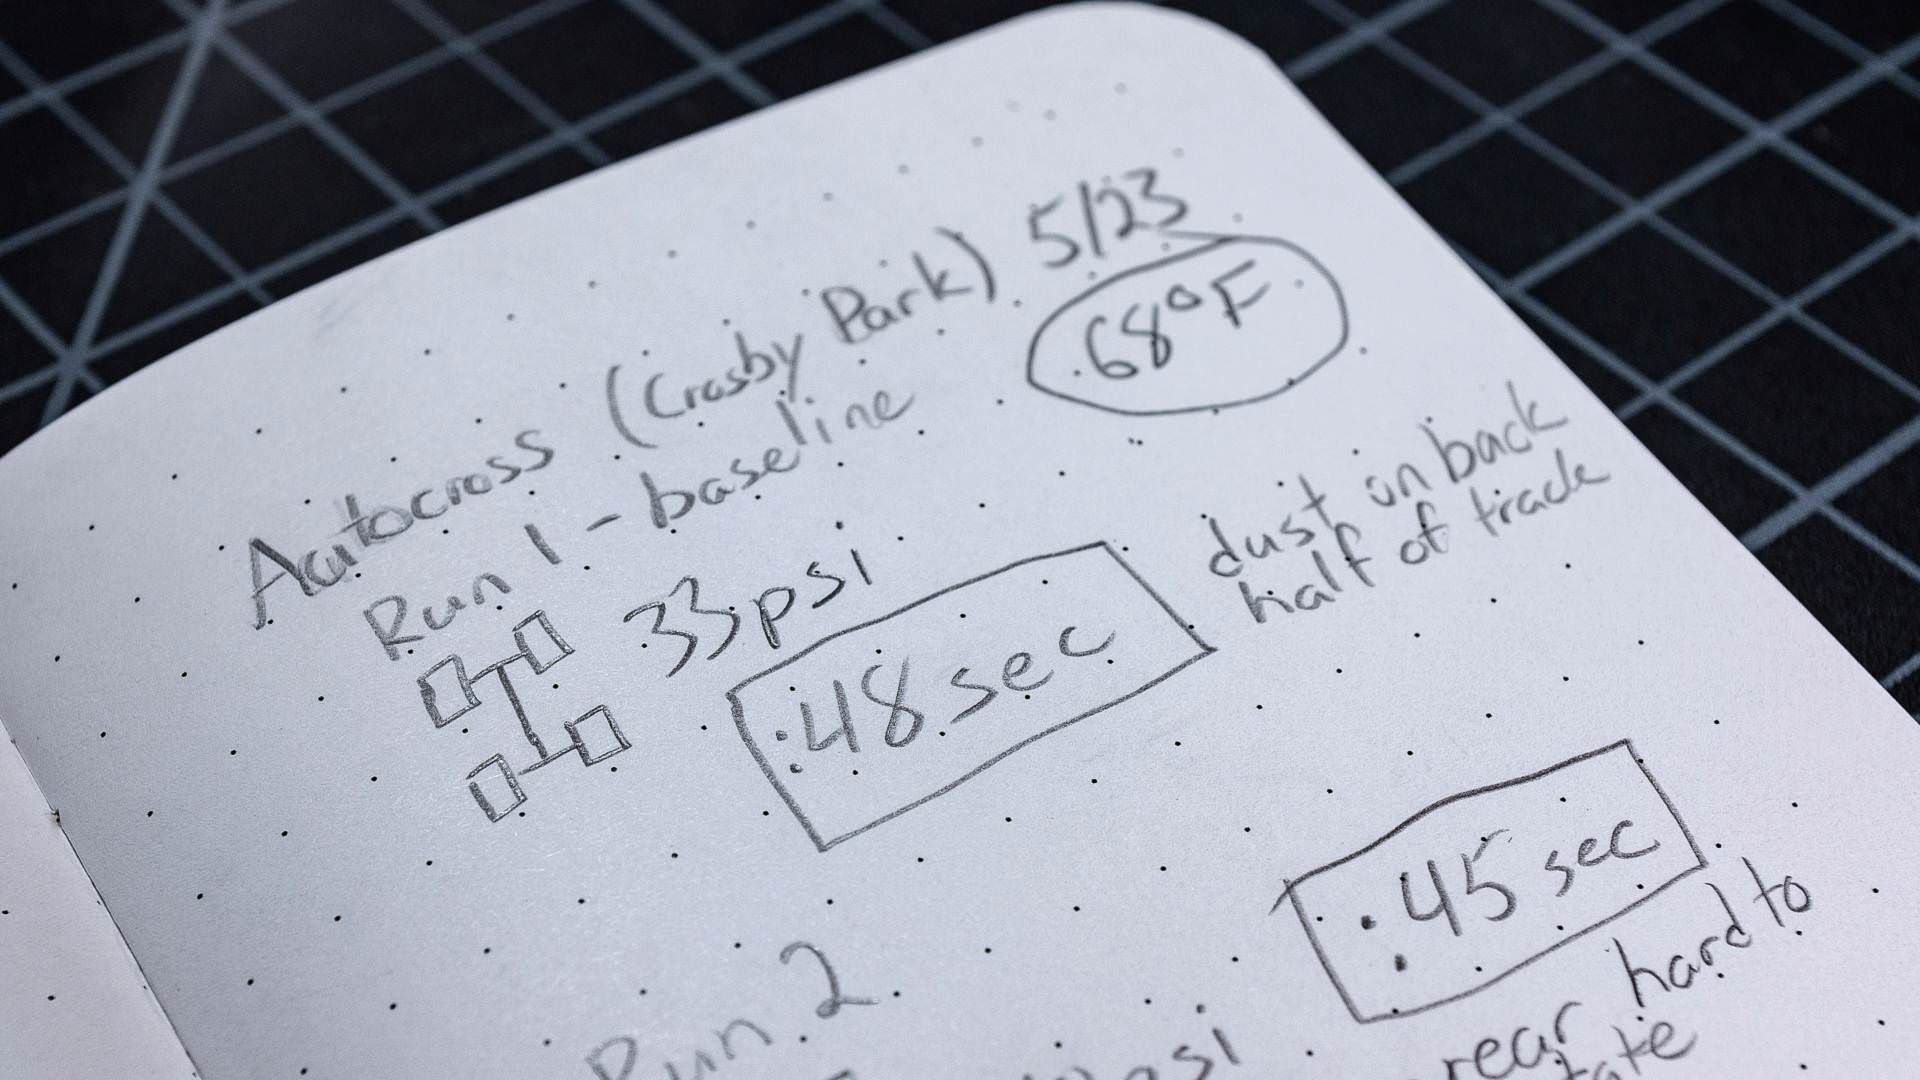 Autocross (Crosby Park) 5/23
68°F
Run 1 - baseline
33psi
:48 sec
dust on back
half of track
:45 sec
Run 2
psi
rear hard to